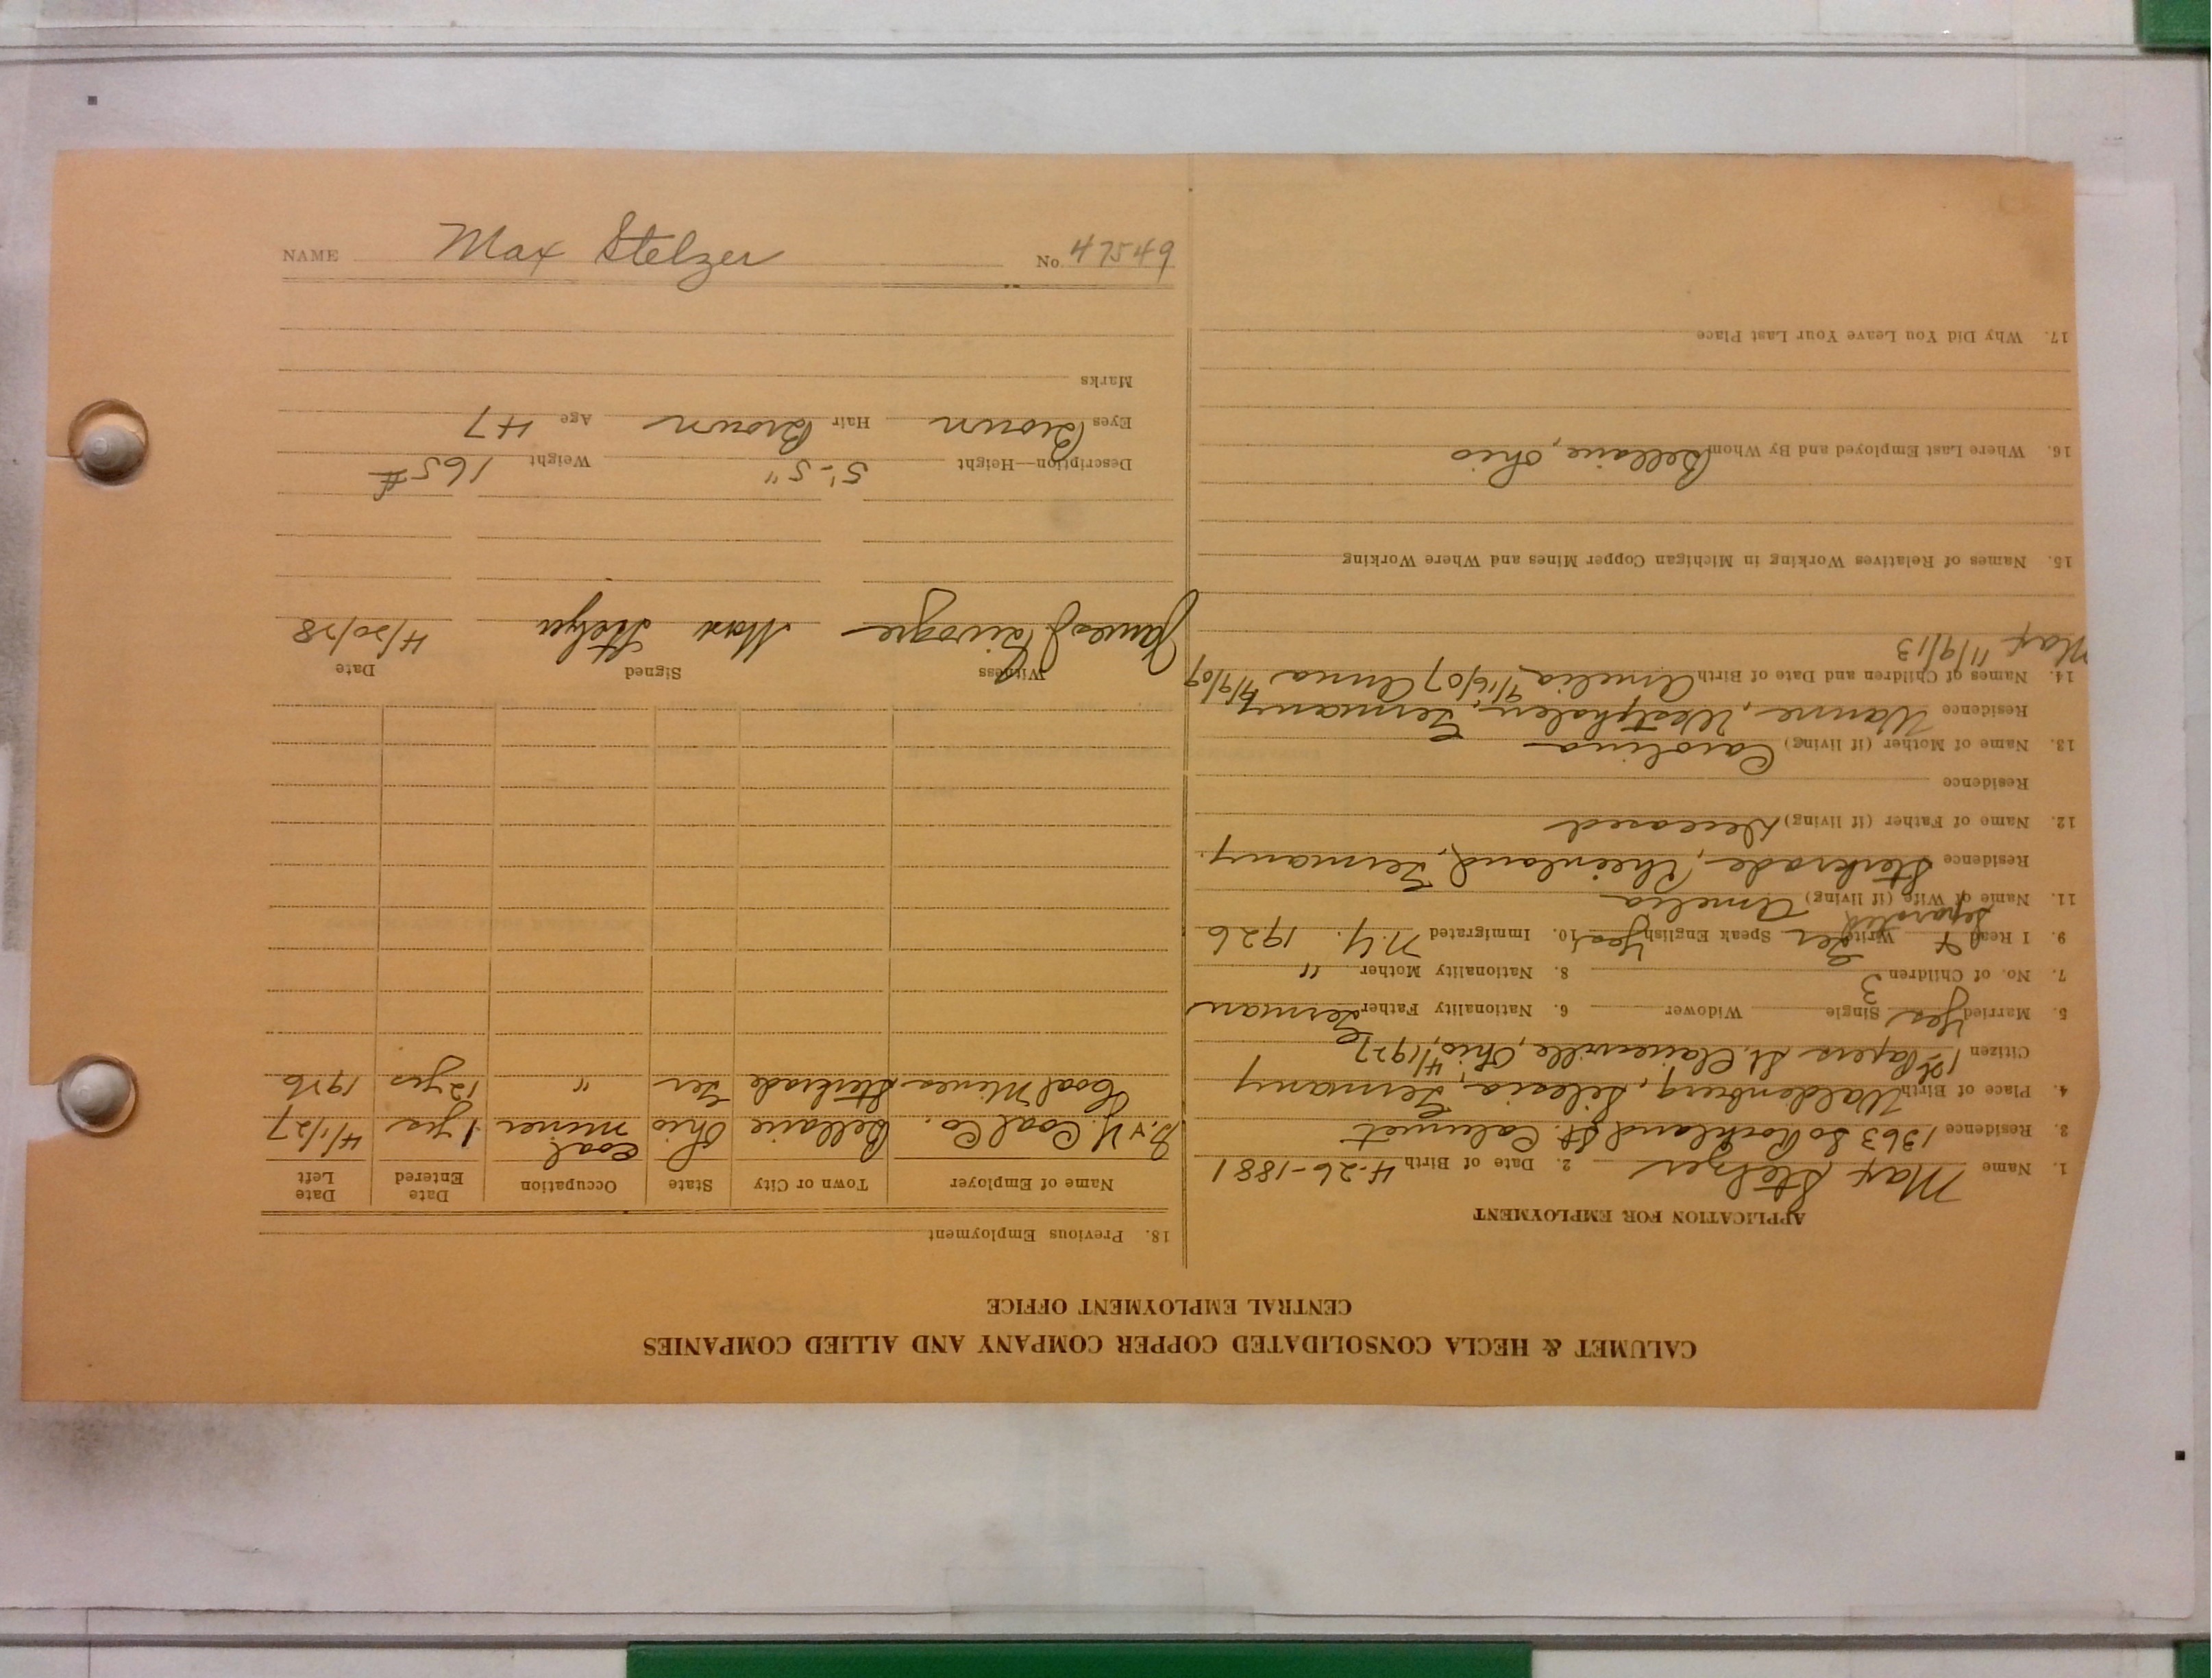 NAME Max Stelzer No. 47549
CALUMET & HECLA CONSOLIDATED COPPER COMPANY AND ALLIED COMPANIES
CENTRAL EMPLOYMENT OFFICE
APPLICATION FOR EMPLOYMENT
1. Name Max Stelzer 2. Date of Birth 4-26-1881
3. Residence 1363 So Rockland St. Calumet
4. Place of Birth Waldenburg, Silesia, Germany
Citizen 1st Papers St. Clairsville, Ohio, 4/1927
5. Married Yes Single Widower 6. Nationality Father German
7. No. of Children 3 8. Nationality Mother "
9. I Read & Write Ger Speak English Yes 10. Immigrated N.Y. 1926
Separated
11. Name of Wife (if living) Amelia
Residence Sterkrade, Rheinland, Germany.
12. Name of Father (if living) Deceased
Residence
13. Name of Mother (if living) Carolina
Residence Wanne, Westphalen, Germany
14. Names of Children and Date of Birth Amelia 9/16/07 Anna 4/9/09
Max 11/9/13
15. Names of Relatives Working in Michigan Copper Mines and Where Working
16. Where Last Employed and By Whom Bellaire, Ohio
17. Why Did You Leave Your Last Place
18. Previous Employment
Name of Employer Town or City State Occupation Date Entered Date Left
Coal Co. Bellaire Ohio Coal miner 1 yr 4/1/27
Coal Mines Sterkrade Ger " 12 yrs 1926
Witness Signed Date
James Max Stelzer 4/30/28
Description—Height 5'-5" Weight 165#
Eyes Brown Hair Brown Age 47
Marks